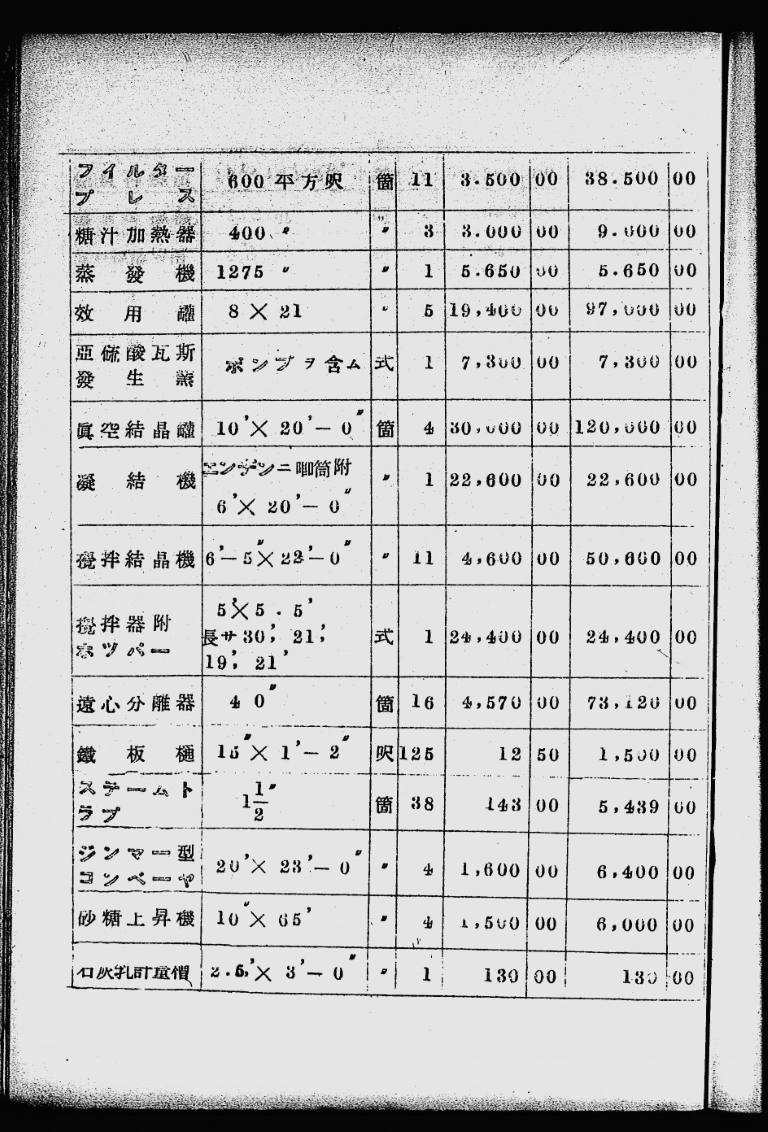 フイルタープレス 600平方呎 箇 11 3.500 00 38.500 00
糖汁加熱器 400〃 〃 3 3.000 00 9.000 00
蒸發機 1275〃 〃 1 5.650 00 5.650 00
效用罐 8×21 〃 5 19,400 00 97,000 00
亞硫酸瓦斯發生 ポンプヲ含ム 式 1 7,300 00 7,300 00
眞空結晶罐 10'×20'-0" 箇 4 30,000 00 120,000 00
凝結機 エンヂンニ喞筒附 6'×20'-0" 〃 1 22,600 00 22,600 00
攪拌結晶機 6'-5"×22'-0" 〃 11 4,600 00 50,600 00
攪拌器附ホツパー 5'×5.5' 長サ30', 21', 19', 21' 式 1 24,400 00 24,400 00
遠心分離器 40" 箇 16 4,570 00 73,120 00
鐵板樋 15"×1'-2" 呎 125 12 50 1,500 00
スチームトラブ 1 1/2" 箇 38 143 00 5,439 00
ジンマー型コンベーヤ 20'×23'-0" 〃 4 1,600 00 6,400 00
砂糖上昇機 10"×65' 〃 4 1,500 00 6,000 00
石灰乳計量槽 2.5'×3'-0" 〃 1 130 00 130 00